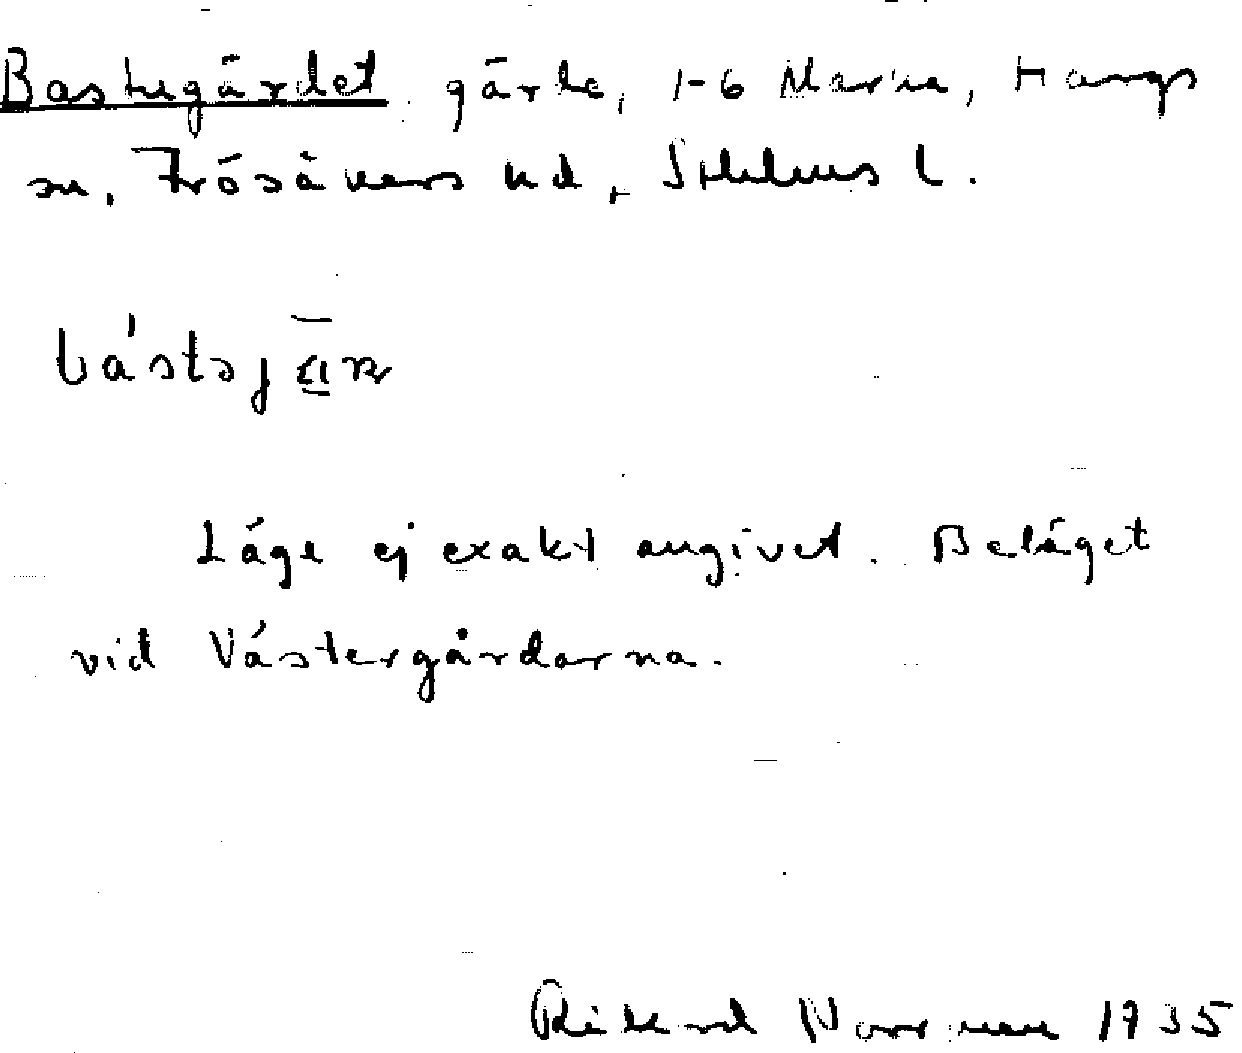 Bastugärdet gärde, 1-6 Marma, Hargs
sn, Frösåkers hd, Sthlms l.
Läge ej exakt angivet. Beläget
vid Västergårdarna.
Rikard Norrman 1935